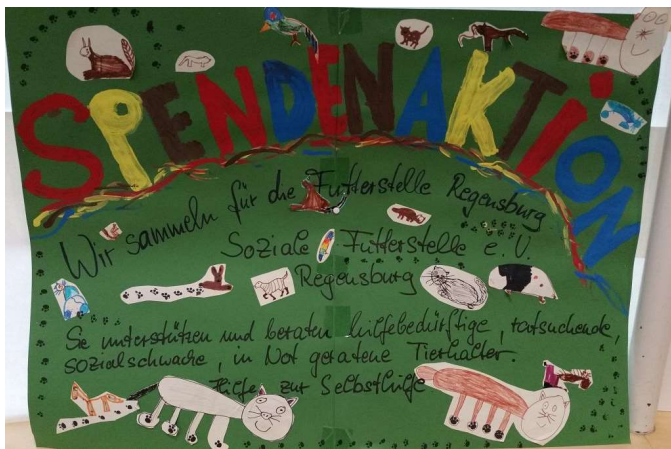 SPENDENAKTION
Wir sammeln für die Futterstelle Regensburg
Soziale Futterstelle e.V.
Regensburg
Sie unterstützen und beraten hilfebedürftige, ratsuchende,
sozialschwache, in Not geratene Tierhalter.
Hilfe zur Selbsthilfe